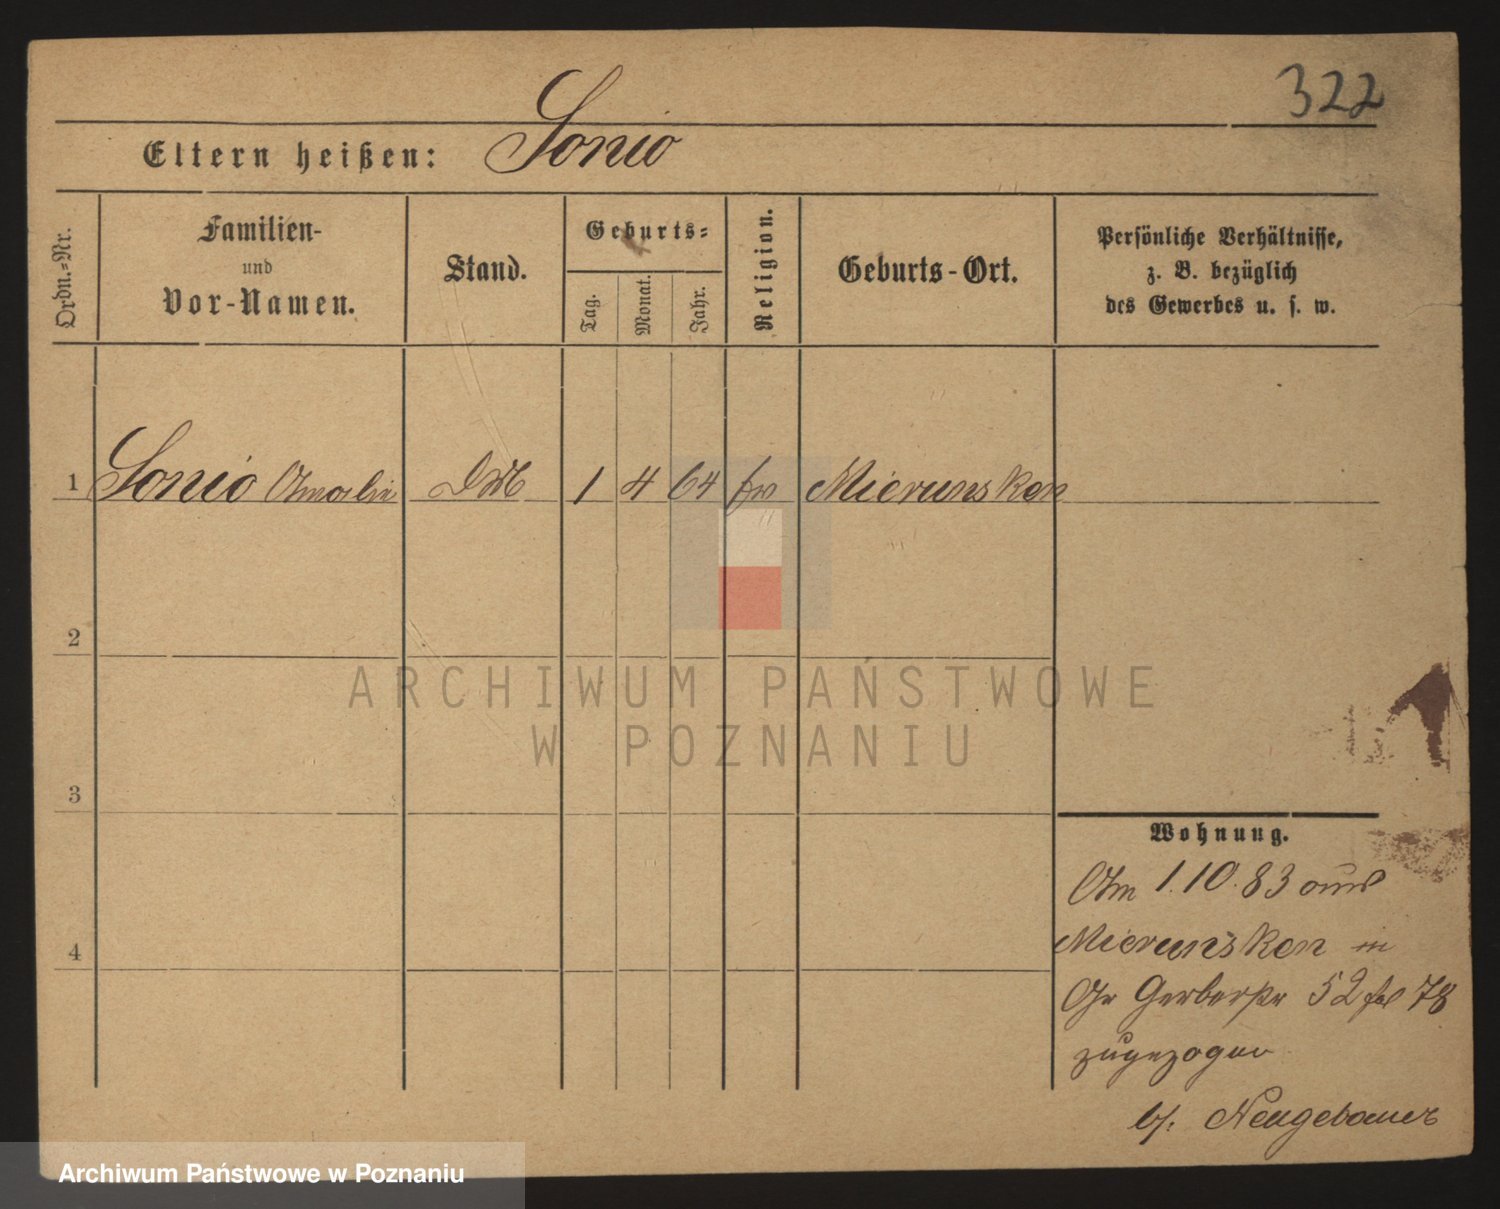 322
Eltern heißen: Sonio
Ordn.-Nr.
Familien-
und
Vor-Namen.
Stand.
Geburts-
Tag.
Monat.
Jahr.
Religion.
Geburts-Ort.
Persönliche Verhältnisse,
z. B. bezüglich
des Gewerbes u. s. w.
1 Sonio Amalie 1 4 64 Mierunsken
2
3
4
Wohnung.
Am 1.10.83 aus
Mierunsken in
Gr Gerberstr 52 78
zugezogen
b/. Neugebauer
ARCHIWUM PAŃSTWOWE
W POZNANIU
Archiwum Państwowe w Poznaniu